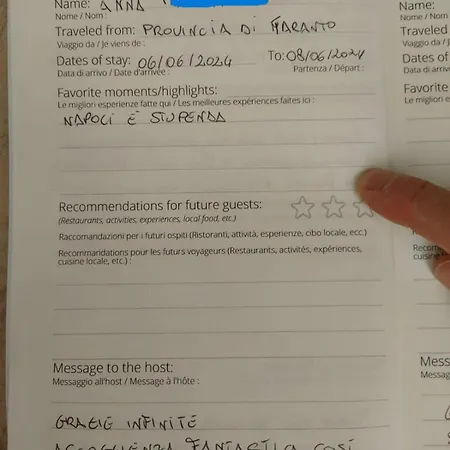 Name: ANNA
Nome / Nom :
Traveled from: PROVINCIA DI TARANTO
Viaggio da / Je viens de :
Dates of stay: 06/06/2024 To: 08/06/2024
Data di arrivo / Date d'arrivée : Partenza / Départ :
Favorite moments/highlights:
Le migliori esperienze fatte qui / Les meilleures expériences faites ici :
NAPOLI È STUPENDA
Recommendations for future guests:
(Restaurants, activities, experiences, local food, etc.)
Raccomandazioni per i futuri ospiti (Ristoranti, attività, esperienze, cibo locale, ecc.)
Recommendations pour les futurs voyageurs (Restaurants, activités, expériences,
cuisine locale, etc.) :
Message to the host:
Messaggio all'host / Message à l'hôte :
GRAZIE INFINITE
ACCOGLIENZA FANTASTICA COSÌ
Name:
Nome / Nom :
Traveled
Viaggio da / J
Dates of
Data di arrivo /
Favorite
Le migliori e
Recom
cuisine
Mess
Messag